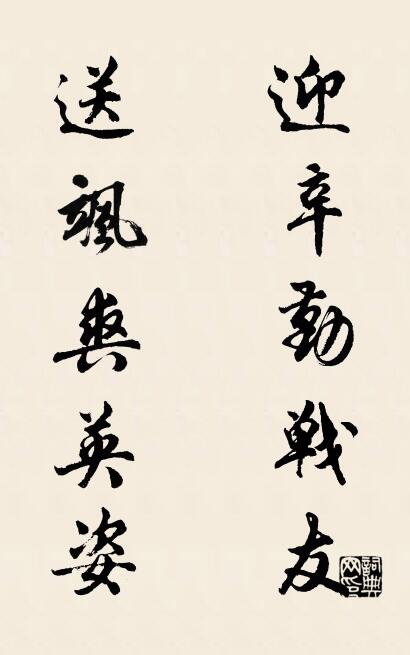 迎辛勤戦友
送颯爽英姿
詞典网印